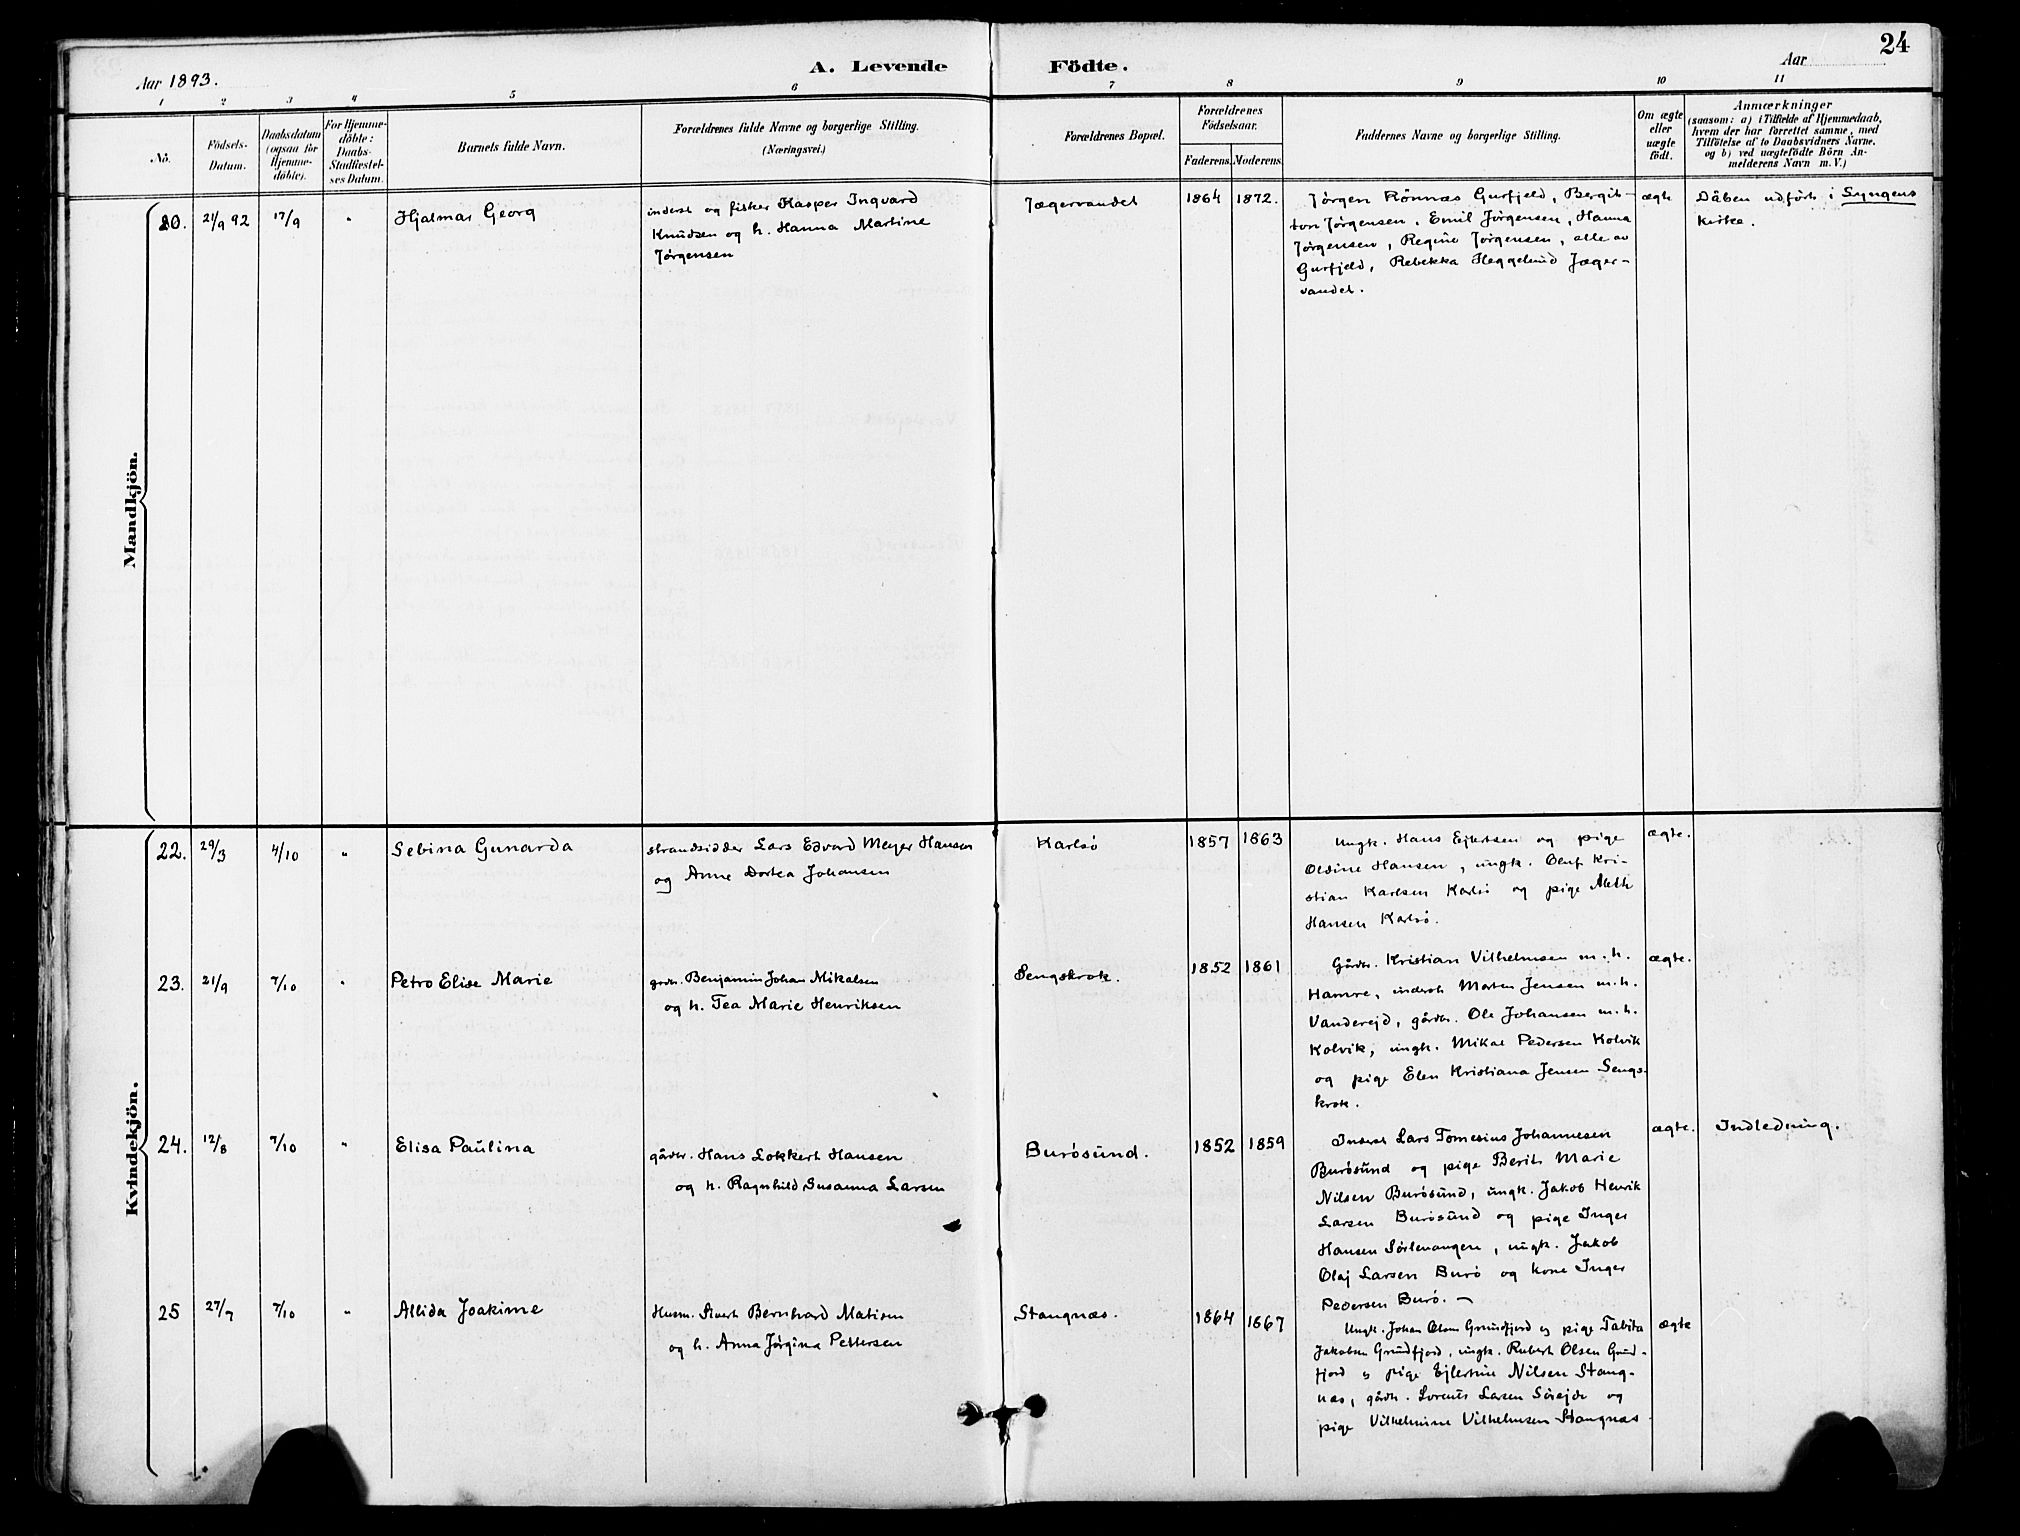 24
Aar 1893.
A. Levende Födte.
Aar
1 2 3 4 5 6 7 8 9 10 11
No.
Födsels-
Datum.
Daabsdatum
(ogsaa for
Hjemme-
döbte).
For Hjemme-
döbte:
Daabs-
Stadfæstel-
ses Datum.
Barnets fulde Navn.
Forældrenes fulde Navne og borgerlige Stilling.
(Næringsvei.)
Forældrenes Bopæl.
Forældrenes
Födselsaar.
Faderens. Moderens.
Faddernes Navne og borgerlige Stilling.
Om ægte
eller
uægte
født.
Anmærkninger
(saasom: a) i Tilfælde af Hjemmedaab,
hvem der har forrettet samme, med
Tilföielse af to Daabsvidners Navne.
og b) ved uægtefödte Börn An-
melderens Navn m. V.)
Mandkjön.
20. 21/9 92 17/9 " Hjalmar Georg
inderst og fisker Kasper Ingvard
Knudsen og h. Hanna Martine
Jørgensen
Jægervandet
1864 1872.
Jørgen Rönnæs Gurfjeld, Bergit-
ton Jørgensen, Emil Jørgensen, Hanna
Jørgensen, Regine Jørgensen, alle av
Gurfjeld, Rebekka Heggelund Jæger-
vandet.
ægte
Dåben udført i Lyngens
kirke.
Kvindekjön.
22. 29/3 4/10 " Sebina Gunarda
strandsidder Lars Edvard Meyer Hansen
og Anne Dortea Johansen
Karlsö
1857 1863
Ungk. Hans Ejlertsen og pige
Oldine Hansen, ungk. Oluf Kri-
stian Karlsen Karlsö og pige Meth
Hansen Karlsö.
ægte.
23. 21/9 7/10 " Petro Elise Marie
grdbr. Benjamin Johan Mikalsen
og h. Tea Marie Henriksen
Sengskrok.
1852 1861
Gårdbr. Kristian Vilhelmsen m.h.
Hamre, inderst Morten Jensen m.h.
Vanderejd, gårdbr. Ole Johansen m.h.
Kolvik, ungk. Mikal Pedersen Kolvik
og pige Elen Kristiana Jensen Sengs-
krok.
ægte.
24. 12/8 7/10 " Elisa Paulina
gårdbr. Hans Lokkert Hansen
og h. Ragnhild Susanna Larsen
Burösund.
1852 1859
Inderst Lars Tomesius Johannesen
Burösund og pige Berit Marie
Nilsen Burösund, ungk. Jakob Henrik
Larsen Burösund og pige Inger
Hansen Sörlenangen, ungk. Jakob
Olaj Larsen Burö og kone Inger
Pedersen Burö. —
ægte.
Indledning.
25 27/7 7/10 " Allida Joakime
Husm. Sivert Bernhard Matisen
og h. Anna Jørgina Pettersen
Stangnæs.
1864 1867
Ungk. Johan Olsen Grundfjord og pige Tabita
Jakobsen Grundfjord, ungk. Robert Olsen Grund-
fjord og pige Ejlertine Nilsen Stang-
næs, gårdbr. Lorents Larsen Söreide og
pige Vilhelmine Vilhelmsen Stangnæs
ægte